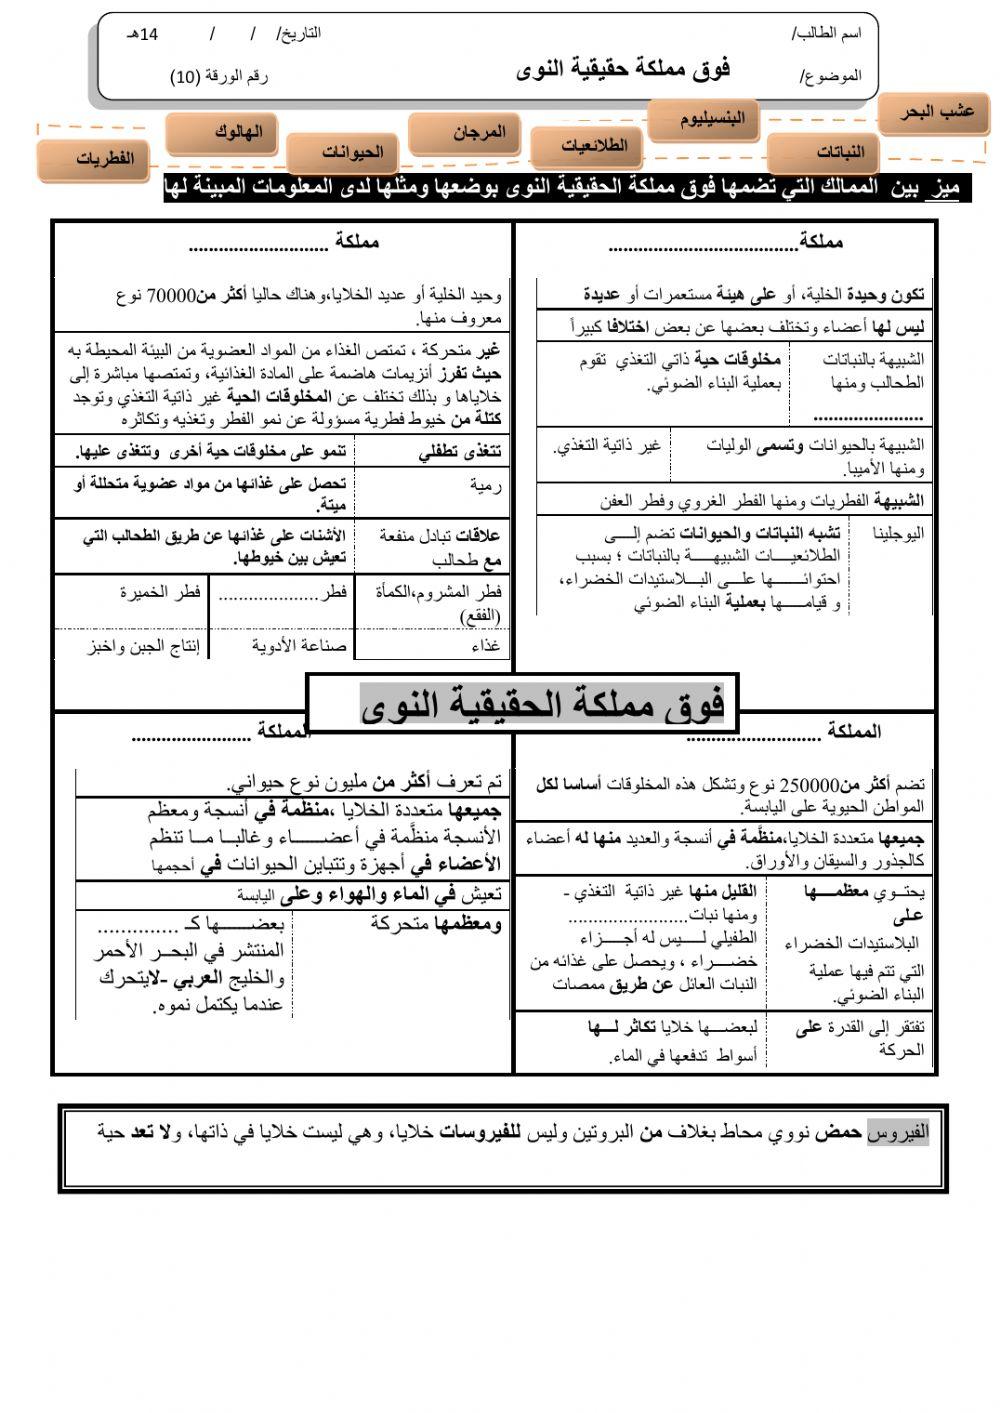 اسم الطالب/ التاريخ/ / / 14هـ
الموضوع/ فوق مملكة حقيقية النوى رقم الورقة (10)
عشب البحر
البنسيليوم
النباتات
الطلائعيات
المرجان
الحيوانات
الهالوك
الفطريات
ميز بين الممالك التي تضمها فوق مملكة الحقيقية النوى بوضعها ومثلها لدى المعلومات المبينة لها
مملكة......................................
تكون وحيدة الخلية، أو على هيئة مستعمرات أو عديدة
ليس لها أعضاء وتختلف بعضها عن بعض اختلافا كبيراً
الشبيهة بالنباتات
الطحالب ومنها
......................
مخلوقات حية ذاتي التغذي تقوم
بعملية البناء الضوئي.
الشبيهة بالحيوانات وتسمى الوليات
ومنها الأميبا.
غير ذاتية التغذي.
الشبيهة الفطريات ومنها الفطر الغروي وفطر العفن
اليوجلينا
تشبه النباتات والحيوانات تضم إلـــى
الطلائعيـــات الشبيهـــــة بالنباتات ؛ بسبب
احتوائـــــــها علـــى البـــلاستيدات الخضراء،
و قيامـــــها بعملية البناء الضوئي
مملكة ............................
وحيد الخلية أو عديد الخلايا،وهناك حاليا أكثر من70000 نوع
معروف منها.
غير متحركة ، تمتص الغذاء من المواد العضوية من البيئة المحيطة به
حيث تفرز أنزيمات هاضمة على المادة الغذائية، وتمتصها مباشرة إلى
خلاياها و بذلك تختلف عن المخلوقات الحية غير ذاتية التغذي وتوجد
كتلة من خيوط فطرية مسؤولة عن نمو الفطر وتغذيه وتكاثره
تتغذى تطفلي
تنمو على مخلوقات حية أخرى وتتغذى عليها.
رمية
تحصل على غذائها من مواد عضوية متحللة أو
ميتة.
علاقات تبادل منفعة
مع طحالب
الأشنات على غذائها عن طريق الطحالب التي
تعيش بين خيوطها.
فطر المشروم،الكمأة
(الفقع)
فطر....................
فطر الخميرة
غذاء
صناعة الأدوية
إنتاج الجبن واخبز
فوق مملكة الحقيقية النوى
المملكة ...........................
تضم أكثر من250000 نوع وتشكل هذه المخلوقات أساسا لكل
المواطن الحيوية على اليابسة.
جميعها متعددة الخلايا،منظَّمة في أنسجة والعديد منها له أعضاء
كالجذور والسيقان والأوراق.
يحتــوي معظمـــــها
علـى
البلاستيدات الخضراء
التي تتم فيها عملية
البناء الضوئي.
القليل منها غير ذاتية التغذي -
ومنها نبات........................
الطفيلي لــــيس له أجـــــزاء
خضــــراء ، ويحصل على غذائه من
النبات العائل عن طريق ممصات
تفتقر إلى القدرة على
الحركة
لبعضــــها خلايا تكاثر لـــها
أسواط تدفعها في الماء.
المملكة ........................
تم تعرف أكثر من مليون نوع حيواني.
جميعها متعددة الخلايا ،منظمة في أنسجة ومعظم
الأنسجة منظَّمة في أعضــــــاء و غالبـــا مـــا تنظم
الأعضاء في أجهزة وتتباين الحيوانات في أحجمها
تعيش في الماء والهواء وعلى اليابسة
ومعظمها متحركة
بعضــــــها كـ ..............
المنتشر في البحـــر الأحمر
والخليج العربي -لايتحرك
عندما يكتمل نموه.
الفيروس حمض نووي محاط بغلاف من البروتين وليس للفيروسات خلايا، وهي ليست خلايا في ذاتها، ولا تعد حية